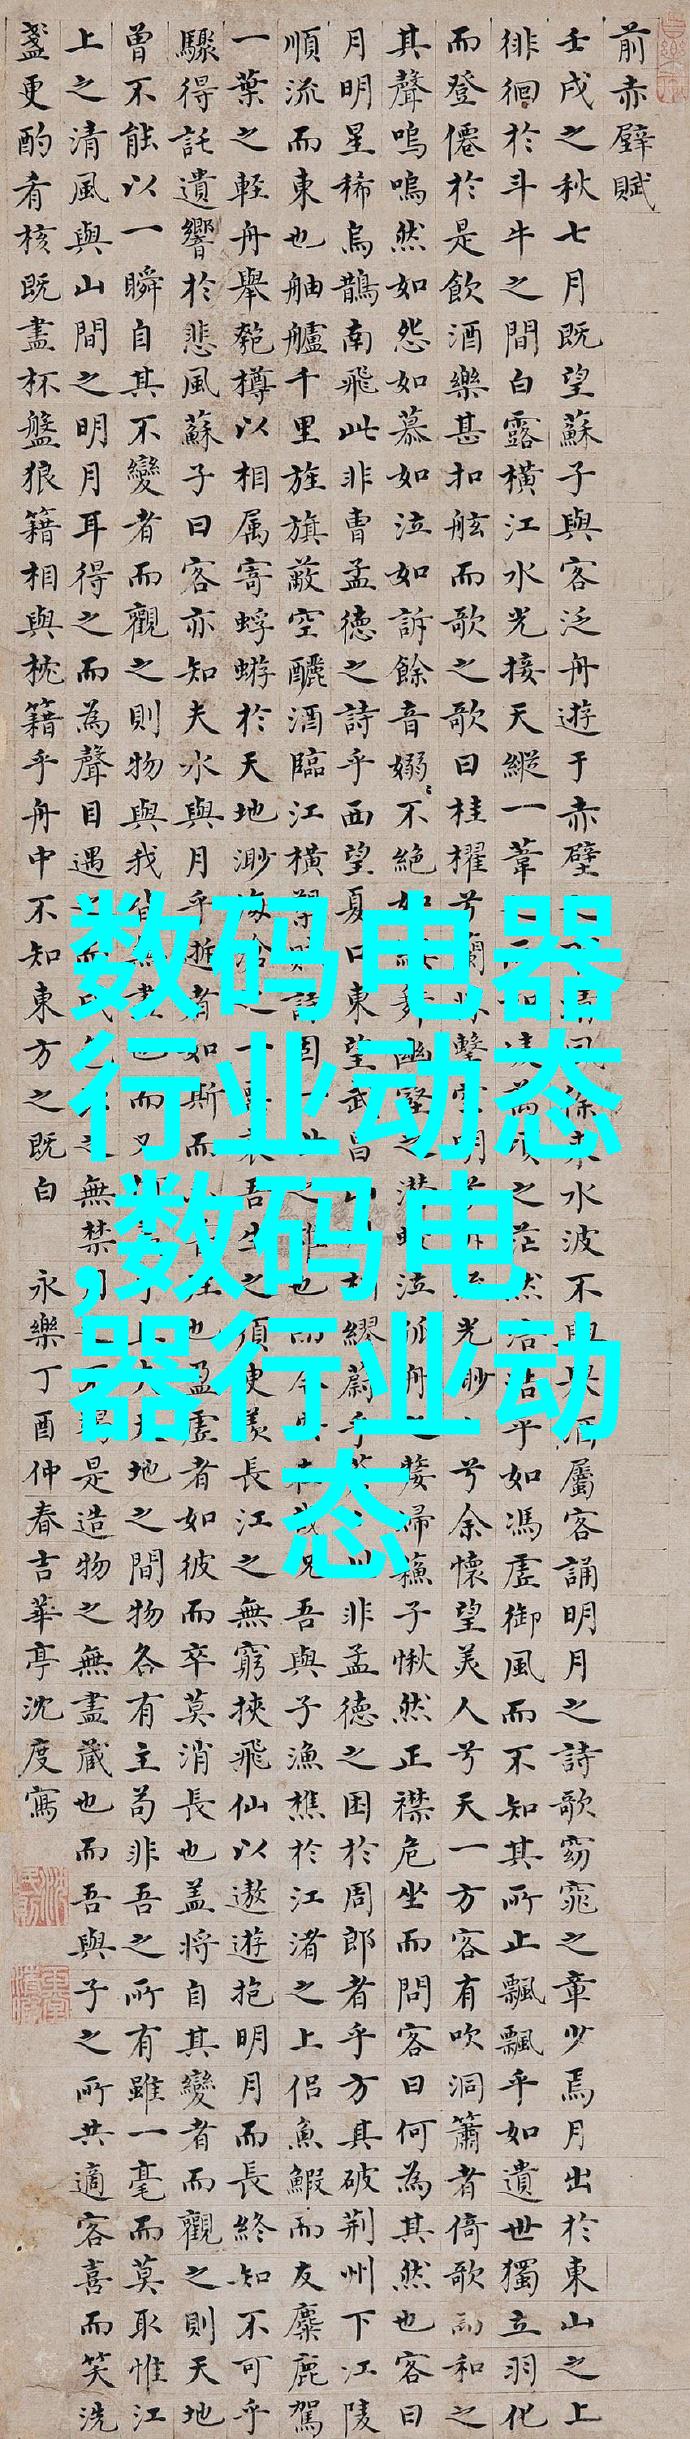 前赤壁賦
壬戌之秋七月既望蘇子與客泛舟遊于赤壁風徐來水波不興酒屬客誦明月之詩歌窈窕之章少焉月出於東山之上
徘徊於斗牛之間白露橫江水光接天縱一葦如凌萬頃之茫然浩浩乎如馮虛御風而不知其所止飄飄乎如遺世獨立羽化
而登僊於是飲酒樂甚扣舷而歌之歌曰桂櫂兮蘭擊空明兮光渺兮余懷望美人兮天一方客有吹洞簫者倚歌而和之
其聲嗚嗚然如怨如慕如泣如訴餘音嫋〻不絕如舞幽壑之潛蛟泣孤舟之嫠婦蘇子愀然正襟危坐而問客曰何為其然也客曰
月明星稀烏鵲南飛此非曹孟德之詩乎西望夏口東望武昌相繆鬱乎非孟德之困於周郎者乎方其破荊州下江陵
順流而東也舳艫千里旌旗蔽空釃酒臨江橫槊賦詩固一世之雄也而今況吾與子漁樵於江渚之上侶魚鰕而友麋鹿駕
一葉之輕舟舉匏樽以相属寄蜉蝣於天地渺海一吾生之須臾羨長江之無窮挾飛仙以遨遊抱明月而長終知不可乎
驟得託遺響於悲風蘇子曰客亦知夫水與月乎逝者如斯而往也盈虛者如彼而卒莫消長也蓋將自其變者而觀之則天地
曾不能以一瞬自其不變者而觀之則物與我皆無盡也而又乎天地之間物各有主苟非吾之所有雖一毫而莫取惟江
上之清風與山間之明月耳得之而為聲目遇而之無禁是造物之無盡藏也而吾與子之所共適客喜而笑洗
盞更酌肴核既盡杯盤狼籍相與枕籍乎舟中不知東方之既白 永樂丁酉仲春吉華亭沈度寫
数码电器
行业动态
,数码电
器行业动
态